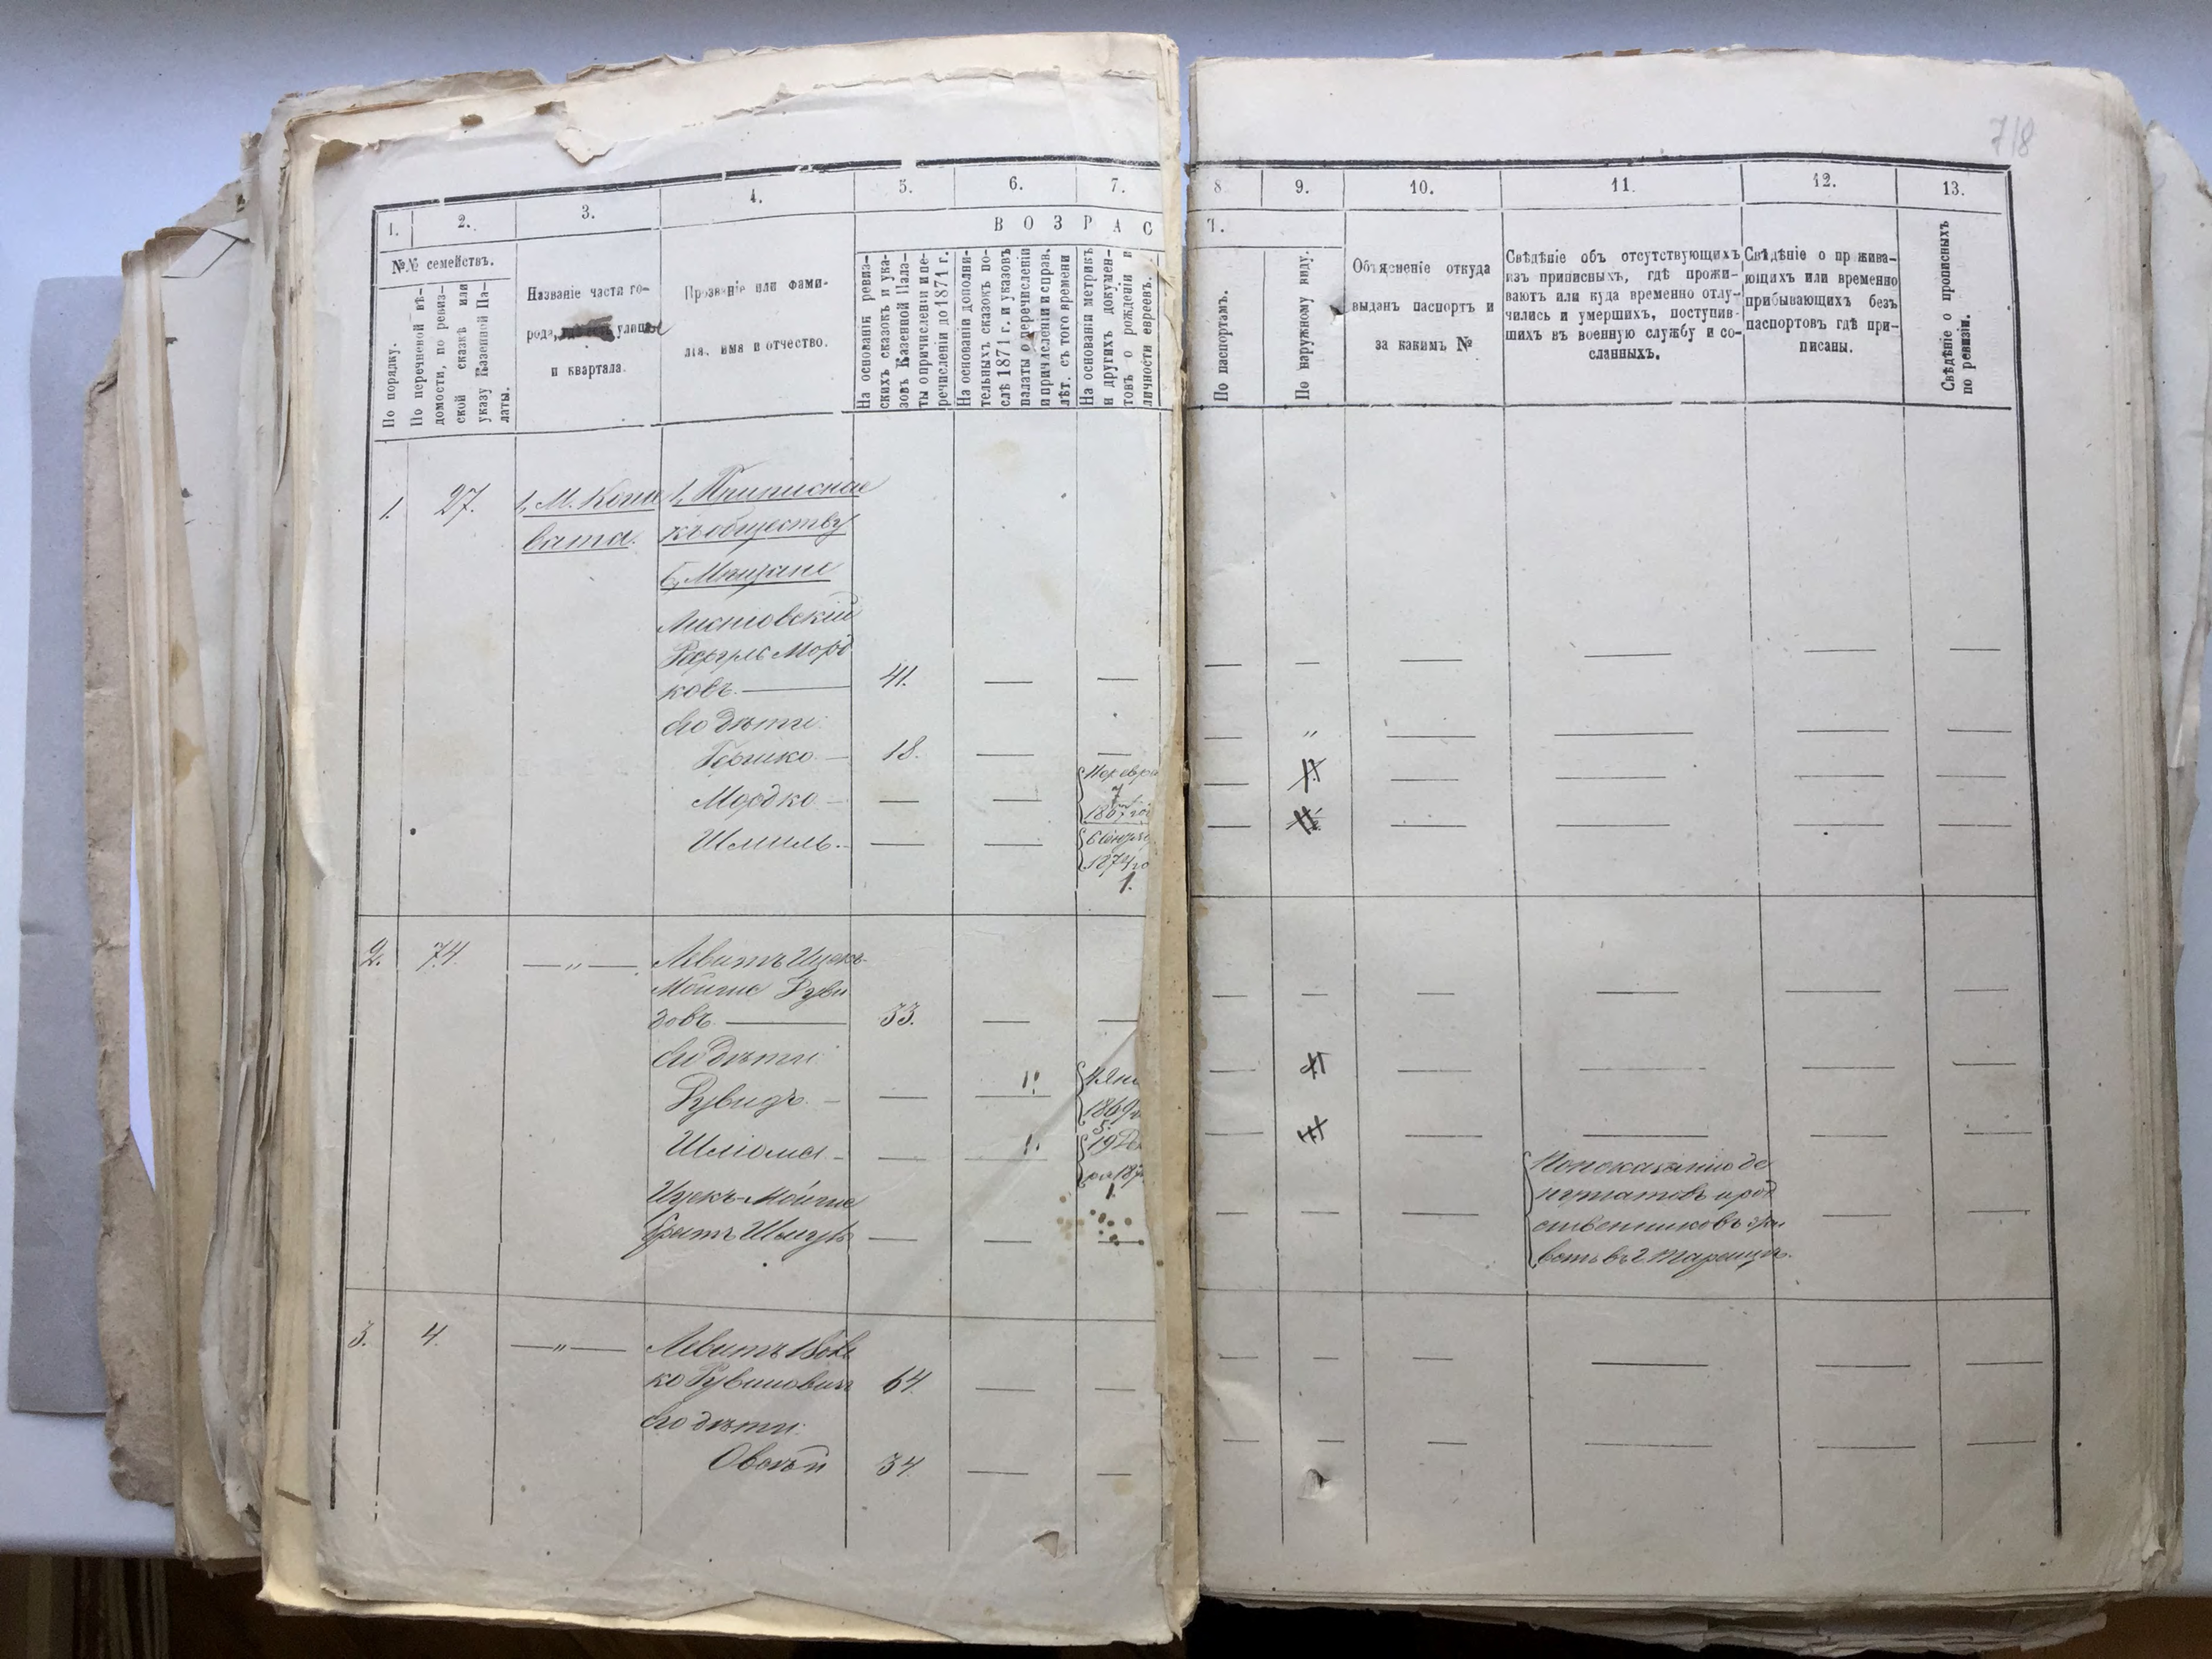 718
1.
2.
3.
4.
5.
6.
7.
8
9.
10.
11.
12.
13.
ВОЗРАС
Т.
№№ семействъ.
По порядку.
По перечневой вѣ-
домости, по ревиз-
ской сказкѣ или
указу Казенной Па-
латы.
Названіе части го-
рода, улицы
и квартала.
Прозваніе или фами-
лія, имя и отчество.
На основаніи ревиз-
скихъ сказокъ и ука-
зовъ Казенной Пала-
ты о причисленіи и пе-
речисленіи до 1871 г.
На основаніи дополни-
тельныхъ сказокъ по-
слѣ 1871 г. и указовъ
палаты о перечисленіи
и причисленіи и справ.
лѣт. съ того времени
На основаніи метрикъ
и другихъ докумен-
товъ о рожденіи и
личности евреевъ.
По паспортамъ.
По наружному виду.
Объясненіе откуда
выданъ паспортъ и
за какимъ №
Свѣдѣніе объ отсутствующихъ
изъ приписныхъ, гдѣ прожи-
ваютъ или куда временно отлу-
чились и умершихъ, поступив-
шихъ въ военную службу и со-
сланныхъ.
Свѣдѣніе о прожива-
ющихъ или временно
прибывающихъ безъ
паспортовъ гдѣ при-
писаны.
Свѣдѣніе о прописныхъ
по ревизіи.
1. 27. 1, М. Кони 1, Приписные
вата. къ обществу
б, Мещане
Листовскій
Морд
ковъ. — 41. — —
Его дѣти:
Гершко — 18. — —
Мордко — — —
7
1867 го
Шмиль. — — —
1874 го
1.
2. 74. — „ — Левитъ Ицекъ-
Мойше Руви
довъ — 33. — —
Его дѣти:
Рувидъ. — — 1. 4 Ян
1869
5.
Шлиома — — 1. 19 Де
187
1.
Ицекъ-Мойше
братъ — — —
По показанію де
путатовъ и род
ственниковъ
въ г. Тараще.
3. 4. — „ — Левитъ Вол
ко Рувиновичъ 64. — —
Его дѣти:
Овсѣй 34 — —